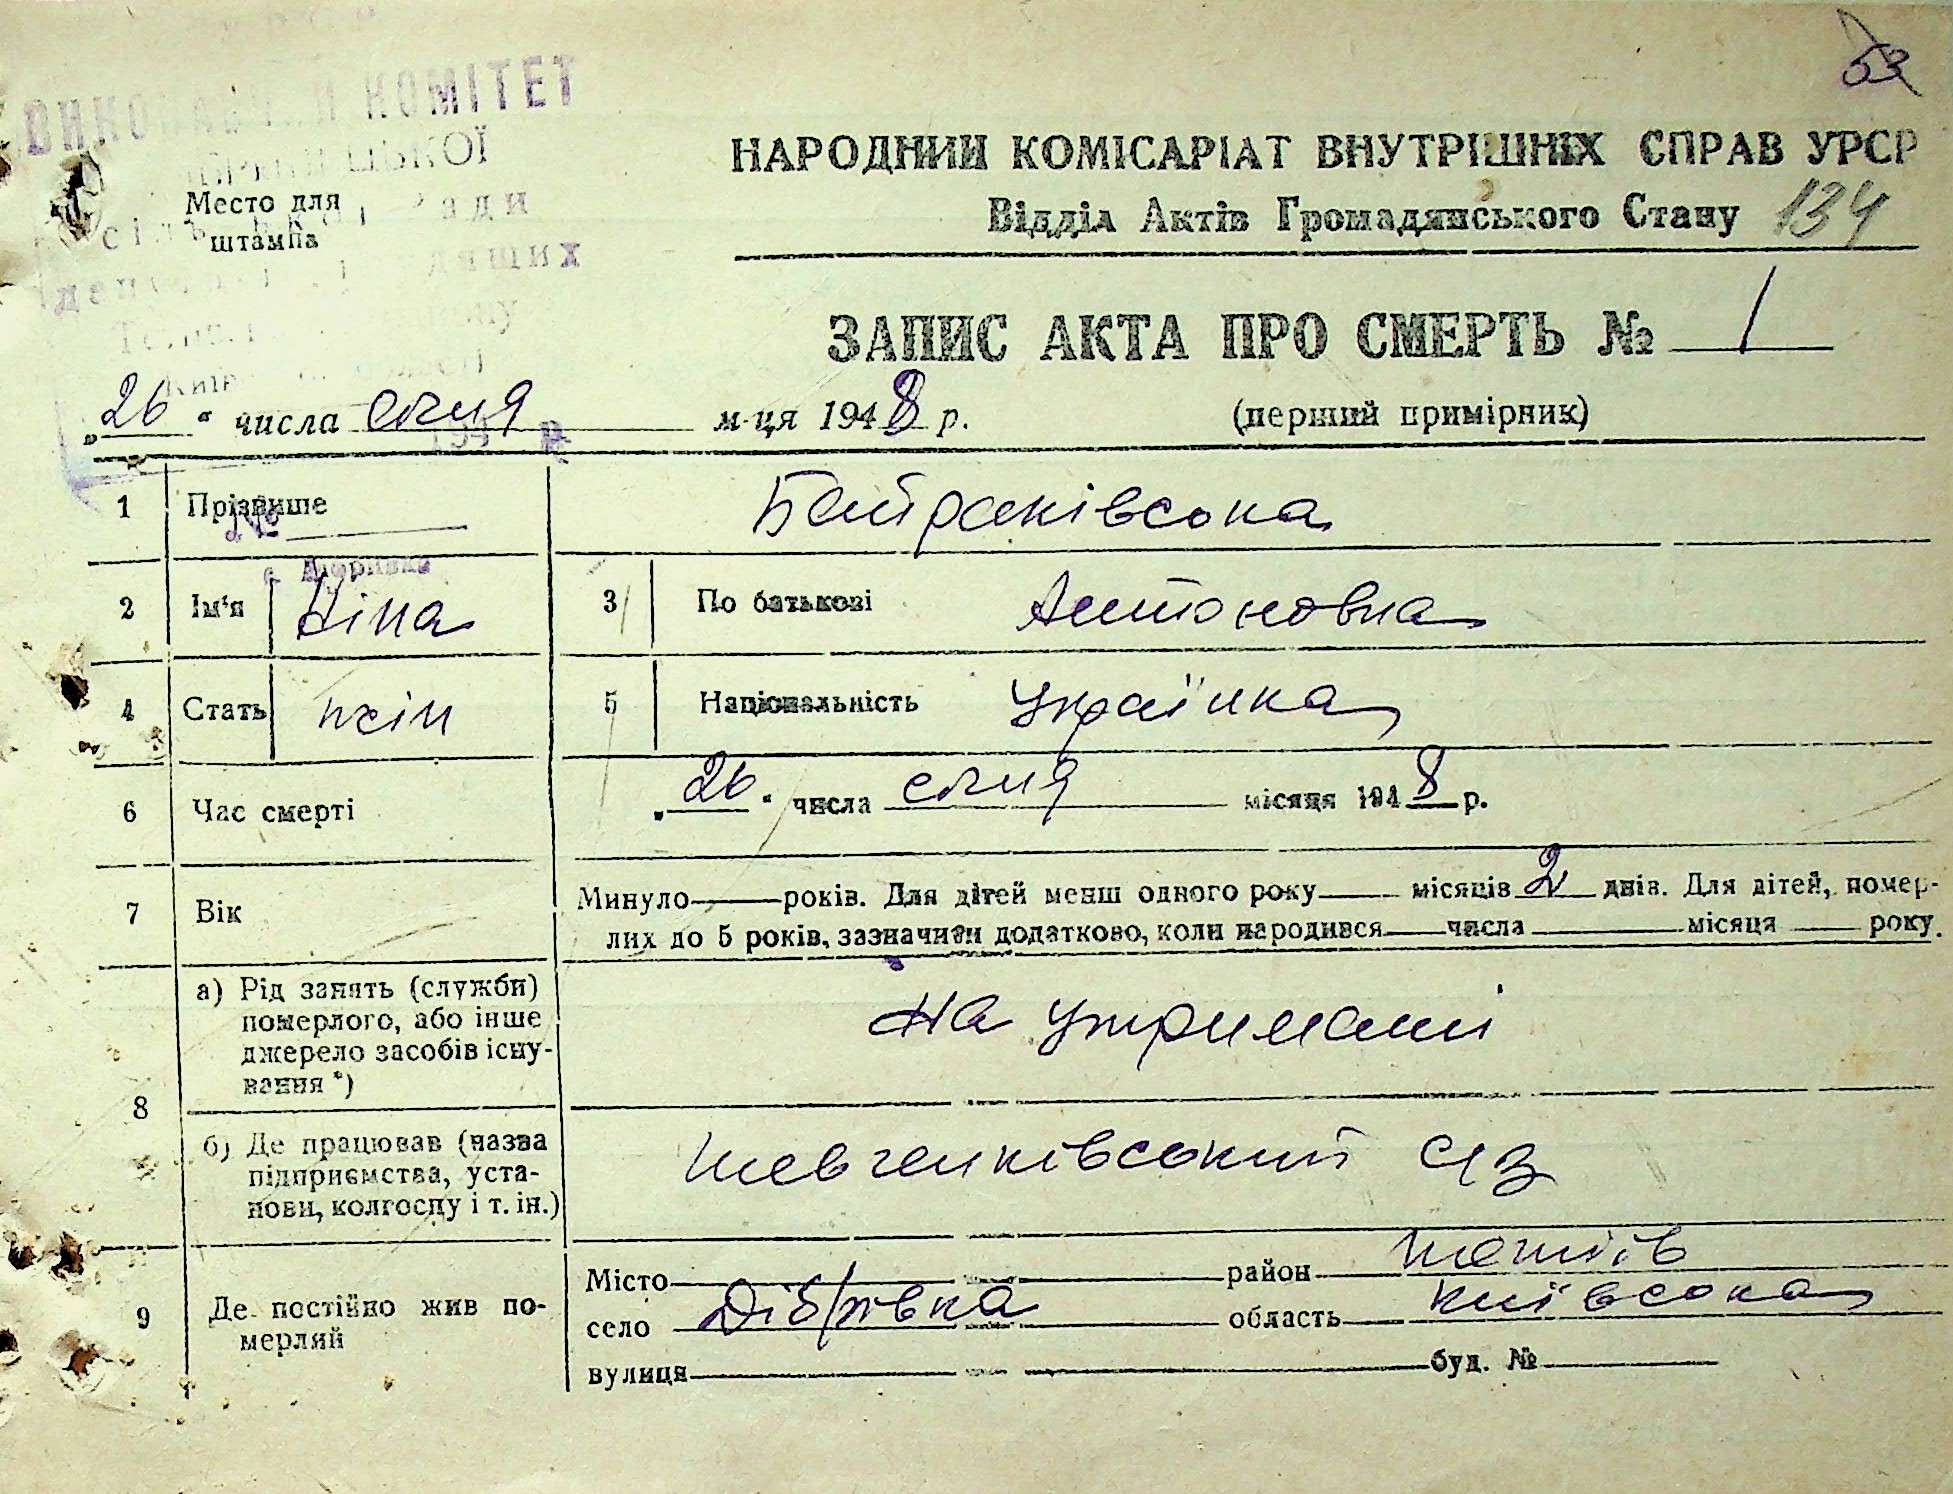 53
ВИКОНАВЧИЙ КОМІТЕТ
Место для
штампа
НАРОДНИЙ КОМІСАРІАТ ВНУТРІШНІХ СПРАВ УРСР
Відділ Актів Громадянського Стану 134
ЗАПИС АКТА ПРО СМЕРТЬ № 1
„26“ числа січня м-ця 1948 р. (перший примірник)
1 Прізвище Байраківська
2 Ім'я Ніна 3 По батькові Антоновна
4 Стать жін 5 Національність українка
6 Час смерті „26“ числа січня місяця 1948 р.
7 Вік Минуло років. Для дітей менш одного року місяців 2 днів. Для дітей, помер-
лих до 5 років, зазначити додатково, коли народився числа місяця року.
8 а) Рід занять (служби)
померлого, або інше
джерело засобів існу-
вання *)
На утримані
б) Де працював (назва
підприємства, уста-
нови, колгоспу і т. ін.)
Шевченківський
9 Де постійно жив по-
мерлий
Місто район
село Дібрівка область Київська
вулиця буд. №